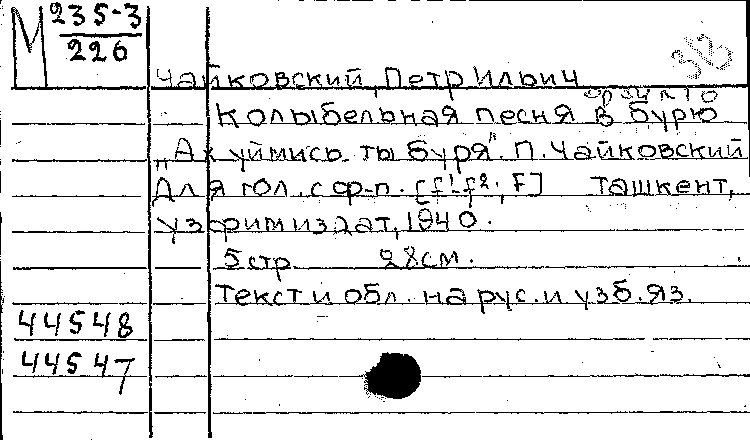 М 235-3
226
313
Чайковский, Петр Ильич
ор 54 N 10
Колыбельная песня в бурю
„Ах уймись ты буря". П. Чайковский
Для гол. с ф-п. [f¹-f², F] Ташкент,
Узфримиздат, 1940.
5 стр. 28 см.
Текст и обл. на рус. и узб. яз.
44548
44547